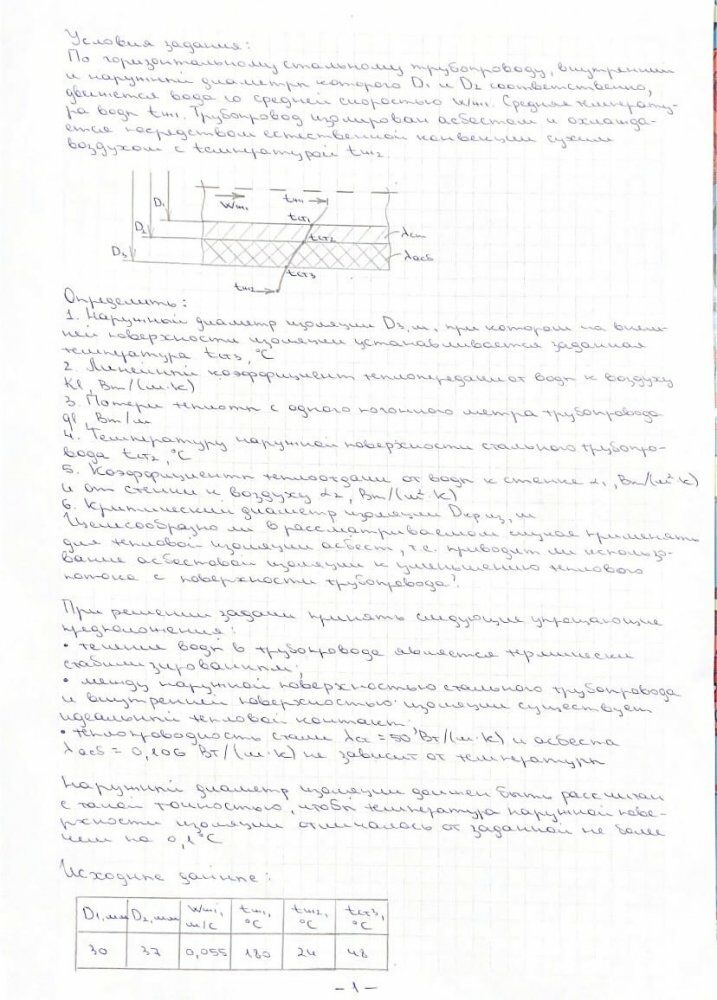 Условия задания:
По горизонтальному стальному трубопроводу, внутренний
и наружный диаметры которого D1 и D2 соответственно,
движется вода со средней скоростью Wж1. Средняя температу-
ра воды tж1. Трубопровод изолирован асбестом и охлажда-
ется посредством естественной конвекции сухим
воздухом с температурой tж2.
Wж1 tж1
D1 tст1
D2 tст2 λст
D3 tст3 λасб
tж2
Определить:
1. Наружный диаметр изоляции D3, м, при котором на внеш-
ней поверхности изоляции устанавливается заданная
температура tст3, °C
2. Линейный коэффициент теплопередачи от воды к воздуху
Kl, Вт/(м·К)
3. Потери теплоты с одного погонного метра трубопровода
ql, Вт/м
4. Температуру наружной поверхности стального трубопро-
вода tст2, °C
5. Коэффициенты теплоотдачи от воды к стенке α1, Вт/(м²·К)
и от стенки к воздуху α2, Вт/(м²·К)
6. Критический диаметр изоляции Dкр.из, м
Целесообразно ли в рассматриваемом случае применять
для тепловой изоляции асбест, т.е. приводит ли использо-
вание асбестовой изоляции к уменьшению теплового
потока с поверхности трубопровода?
При решении задачи принять следующие упрощающие
предположения:
• течение воды в трубопроводе является термически
стабилизированным;
• между наружной поверхностью стального трубопровода
и внутренней поверхностью изоляции существует
идеальный тепловой контакт.
• теплопроводность стали λст = 50 Вт/(м·К) и асбеста
λасб = 0,106 Вт/(м·К) не зависит от температуры
Наружный диаметр изоляции должен быть рассчитан
с такой точностью, чтобы температура наружной пове-
рхности изоляции отличалась от заданной не более
чем на 0,1°C
Исходные данные:
D1, мм D2, мм Wж1, м/с tж1, °C tж2, °C tст3, °C
30 37 0,055 180 24 48
- 1 -